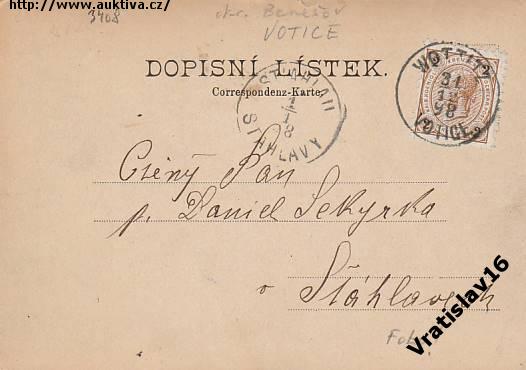 http://www.auktiva.cz/
3408
okr. Benešov
VOTICE
DOPISNÍ LÍSTEK.
Correspondenz-Karte.
WOTTITZ
31
12
98
VOTICE
ŠŤÁHLAVY
Ctěný Pan
p. Daniel Sekyrka
v Šťáhlavech
Vratislav16